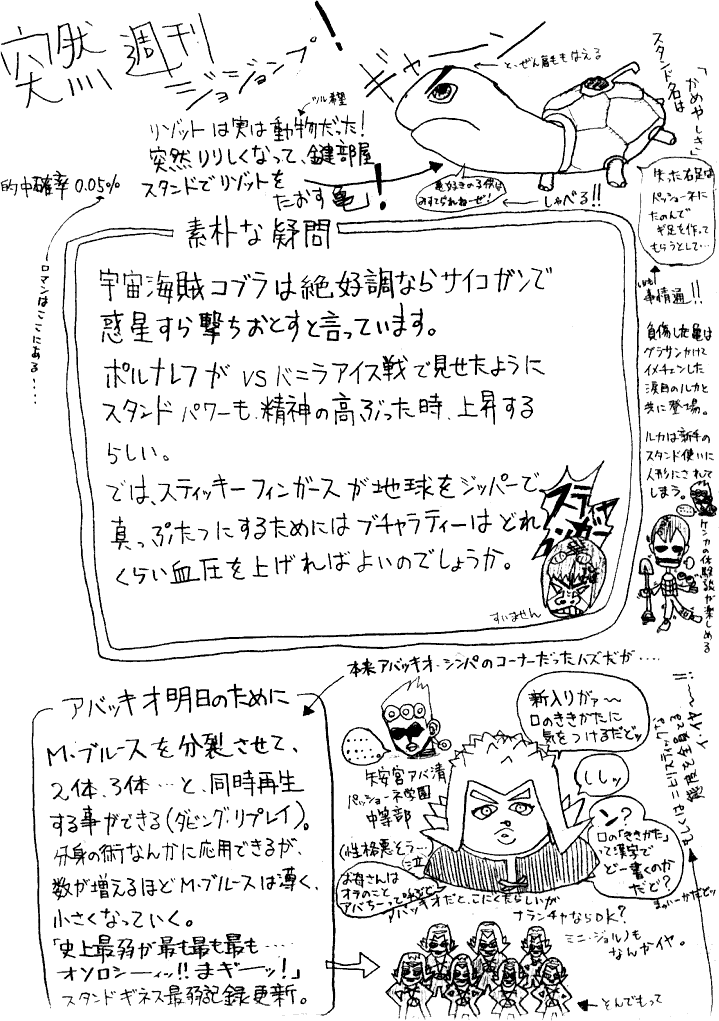 突然週刊
ジョジョンプ!
ギャーン
と、ぜん眉ももはえる
スタンド名は
「かめやしき」
ツル希望
リゾットは実は動物だった!
突然りりしくなって、鍵部屋
スタンドでリゾットを
たおす亀」!
的中確率 0.05%
ロマンはここにある・・・・
亀好きのろ俺は
みすてられねーぜ!
しゃべる!!
失った右足は
パッショーネに
たのんで
ギ足を作って
もらうとして…
事情通!!
負傷した亀は
グラサンかけて
イメチェンした
涙目のルカと
共に登場。
ルカは新手の
スタンド使いに
人形にされて
しまう。
ケンカの体験談が楽しめる
素朴な疑問
宇宙海賊コブラは絶好調ならサイコガンで
惑星すら撃ちおとすと言っています。
ポルナレフが vsバニラアイス戦で見せたように
スタンドパワーも、精神の高ぶった時、上昇する
らしい。
では、スティッキーフィンガースが地球をジッパーで
真っぷたつにするためにはブチャラティーはどれ
くらい血圧を上げればよいのでしょうか。
すいません
本来アバッキオ・シンパのコーナーだったハズだが・・・・
アバッキオ明日のために
M・ブルースを分裂させて、
2体、3体…と、同時再生
する事ができる(ダビング・リプレイ)。
分身の術なんかに応用できるが、
数が増えるほどM・ブルースは薄く、
小さくなっていく。
「史上最弱が最も最も最も・・・・
オソロシーィッ!!まギーッ!」
スタンドギネス最弱記録更新。
新入りがァ〜
口のききかたに
気をつけるだどッ
矢安宮アバ清
パッショーネ学園
中等部
(性格悪そう…
ししッ
ン?
口の「ききかた」
って漢字で
どー書くのか
だど?
まっいーかだどッ
お母さんは
オラのこと
アバちーって呼ぶど
アバッキオだと、こにくたらしいが
ナランチャならOK?
ミニ・ジョルノも
なんかイヤ。
とんでもって